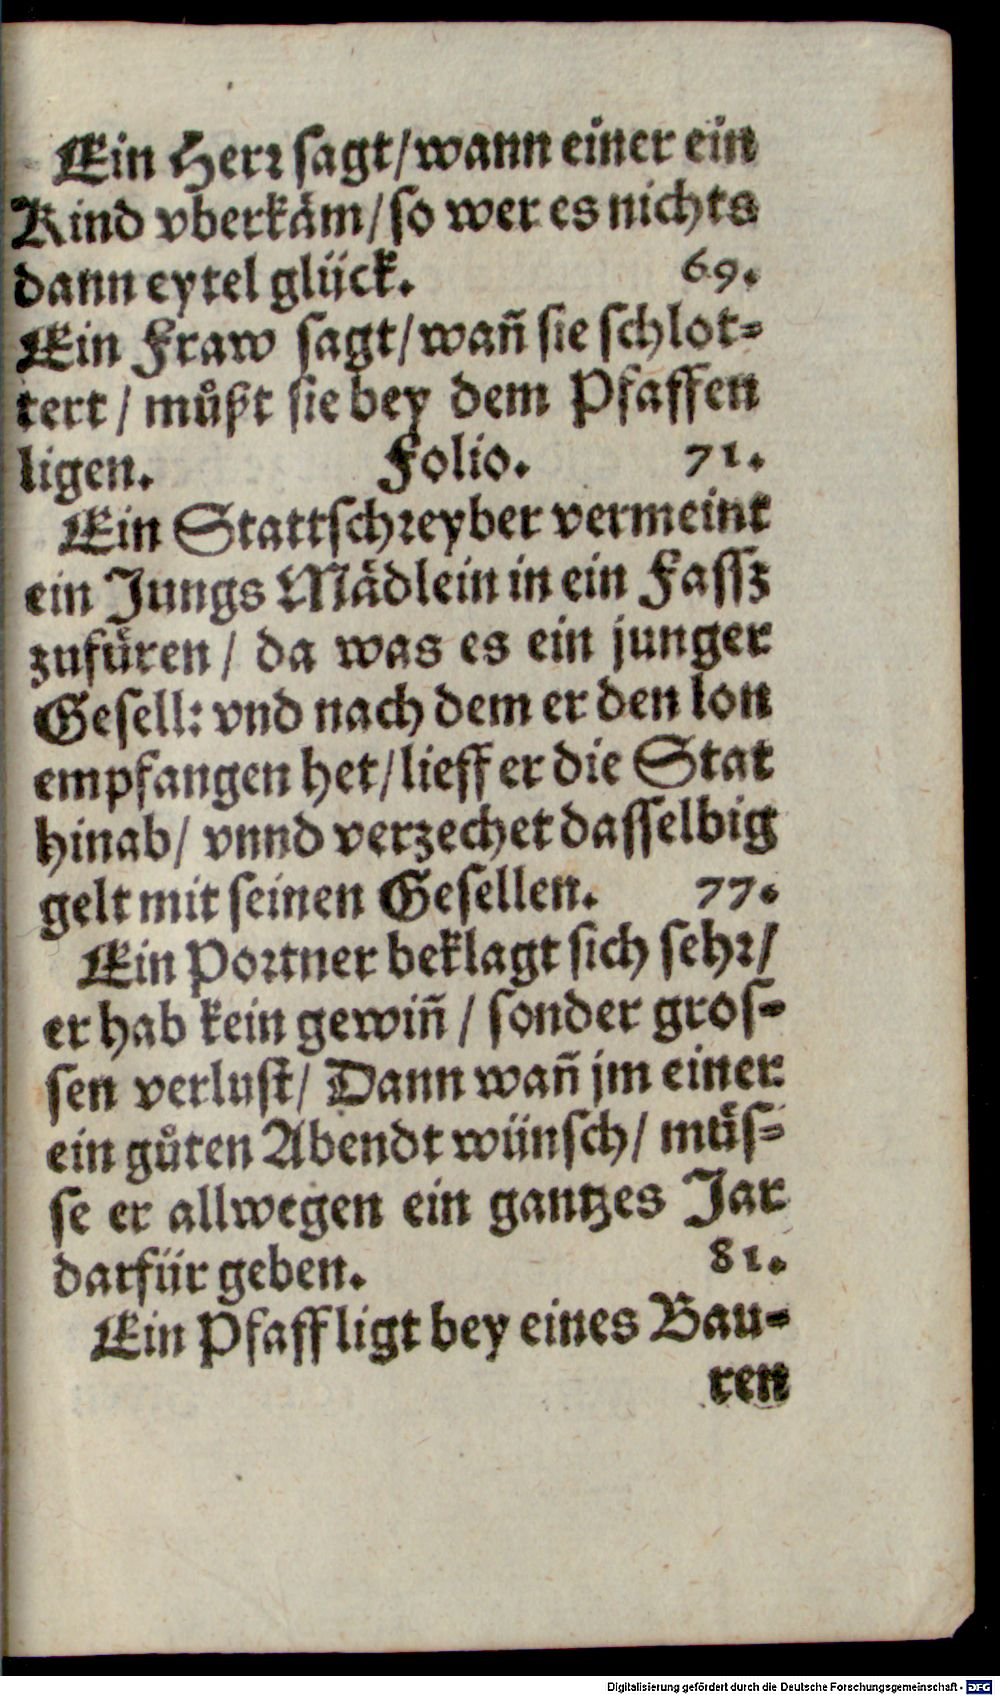 Ein Herr sagt/wann einer ein
Kind vberkäm/so wer es nichts
dann eytel glück. 69.
Ein Fraw sagt/wañ sie schlot-
tert/ müßt sie bey dem Pfaffen
ligen. Folio. 71.
Ein Stattschreyber vermeint
ein Jungs Mädlein in ein Fassz
zufüren/ da was es ein junger
Gesell: vnd nach dem er den lon
empfangen het/lieff er die Stat
hinab/ vnnd verzechet dasselbig
gelt mit seinen Gesellen. 77.
Ein Portner beklagt sich sehr/
er hab kein gewiñ/ sonder gros-
sen verlust/ Dann wañ jm einer
ein gůten Abendt wünsch/ müs-
se er allwegen ein gantzes Jar
darfür geben. 81.
Ein Pfaff ligt bey eines Bau-
ren
Digitalisierung gefördert durch die Deutsche Forschungsgemeinschaft - DFG